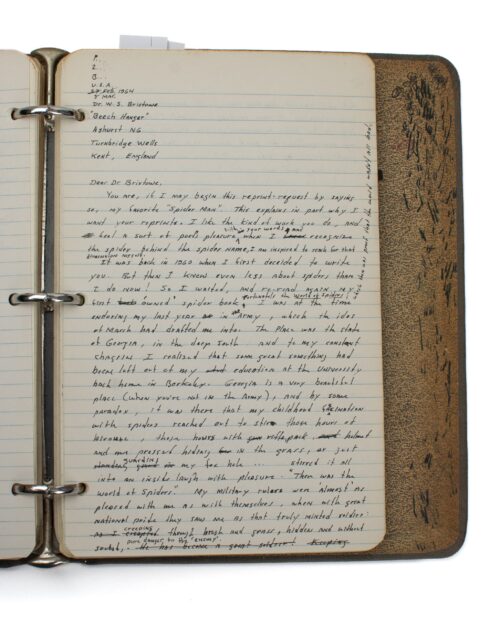 1.
2.
3.
U.S.A.
27 Feb, 1964
5 Mar.
Dr. W. S. Bristowe
"Beech Hanger"
Ashurst NG
Turnbridge Wells
Kent, England
Dear Dr Bristowe,
You are, if I may begin this reprint-request by saying
so, my favorite "Spider Man". This explains in part why I
want your reprints: I like the kind of work you do, and
feel a sort of pooh pleasure when I recognize
the spider behind the spider name, I am inspired to reach for that
It was back in 1960 when I first decided to write
you. But then I knew even less about spiders than
I do now! So I waited, and re-read again, my
first owned spider book, fortunately the World of Spiders! I was at the time
enduring my last year in the Army, which the ides
of March had drafted me into. The place was the state
of Georgia, in the deep south and to my constant
chagrin I realized that some great something had
been left out of my education at the University
back home in Berkeley. Georgia is a very beautiful
place (when you're not in the Army), and by some
paradox, it was there that my childhood fascination
with spiders reached out to those hours of
, those hours with rifle, pack helmet
and me pressed hiding in the grass, or just
guarding my fox hole ... stirred it all
into an inside laugh with pleasure. "Then was the
World of Spiders". My military rulers were almost as
pleased with me as with themselves, when with great
national pride they saw me as that truly minted soldier:
creeping through brush and grass, hidden and without
sound, He has become a great soldier! Keeping
pure danger to the "enemy".